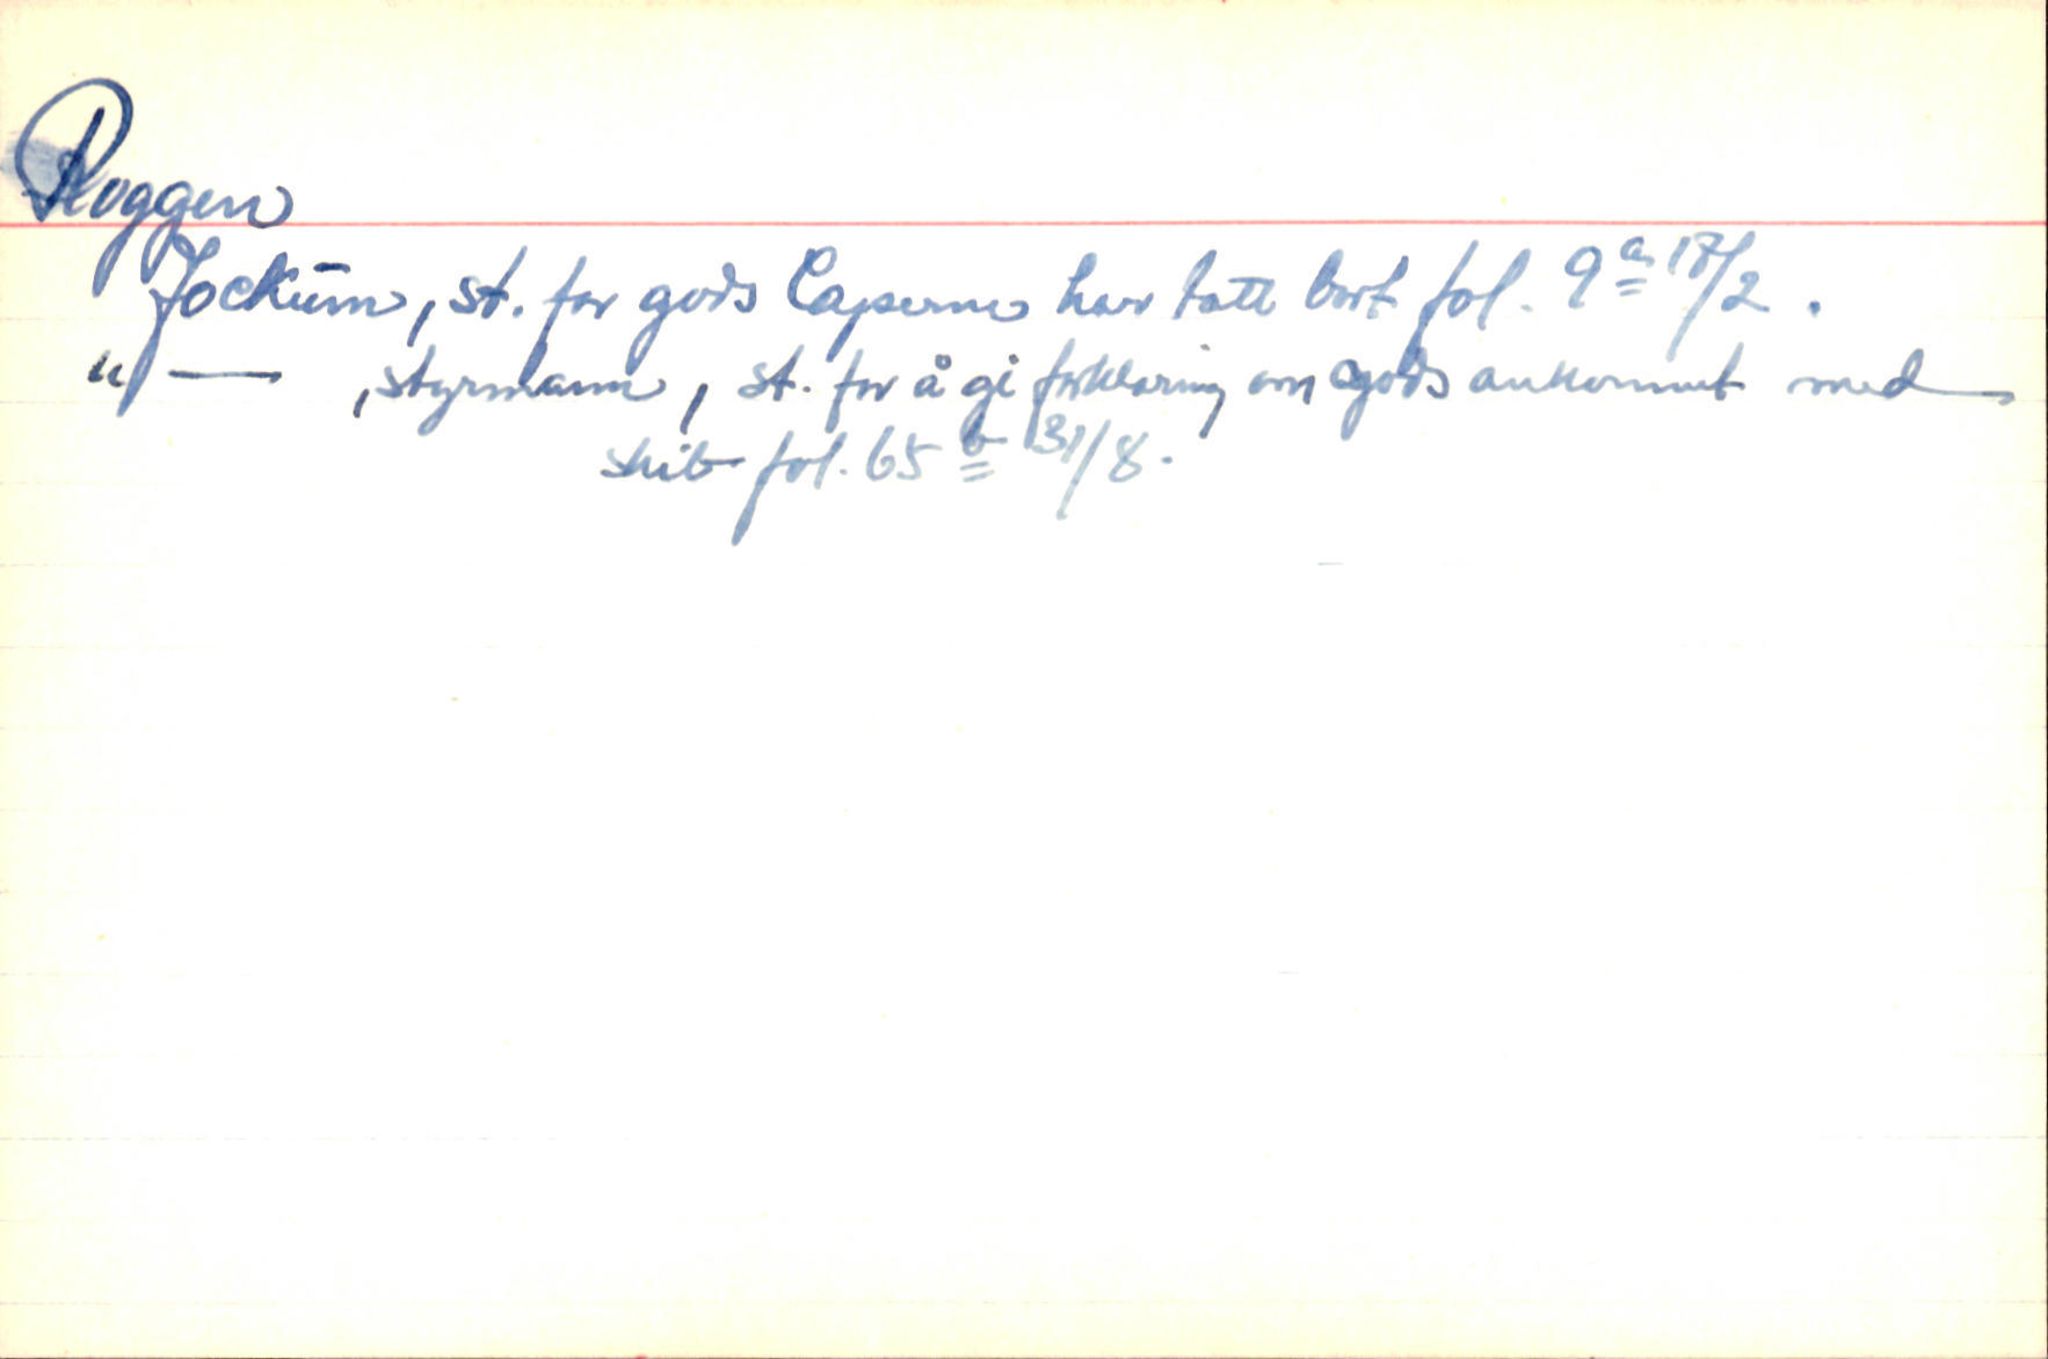 Roggen
Jockum, st. for gods Caperne har tatt bort fol. 9 a 18/2.
" — , styrmann, st. for å gi forklaring om gods ankommet med
skib fol. 65 b 31/8.